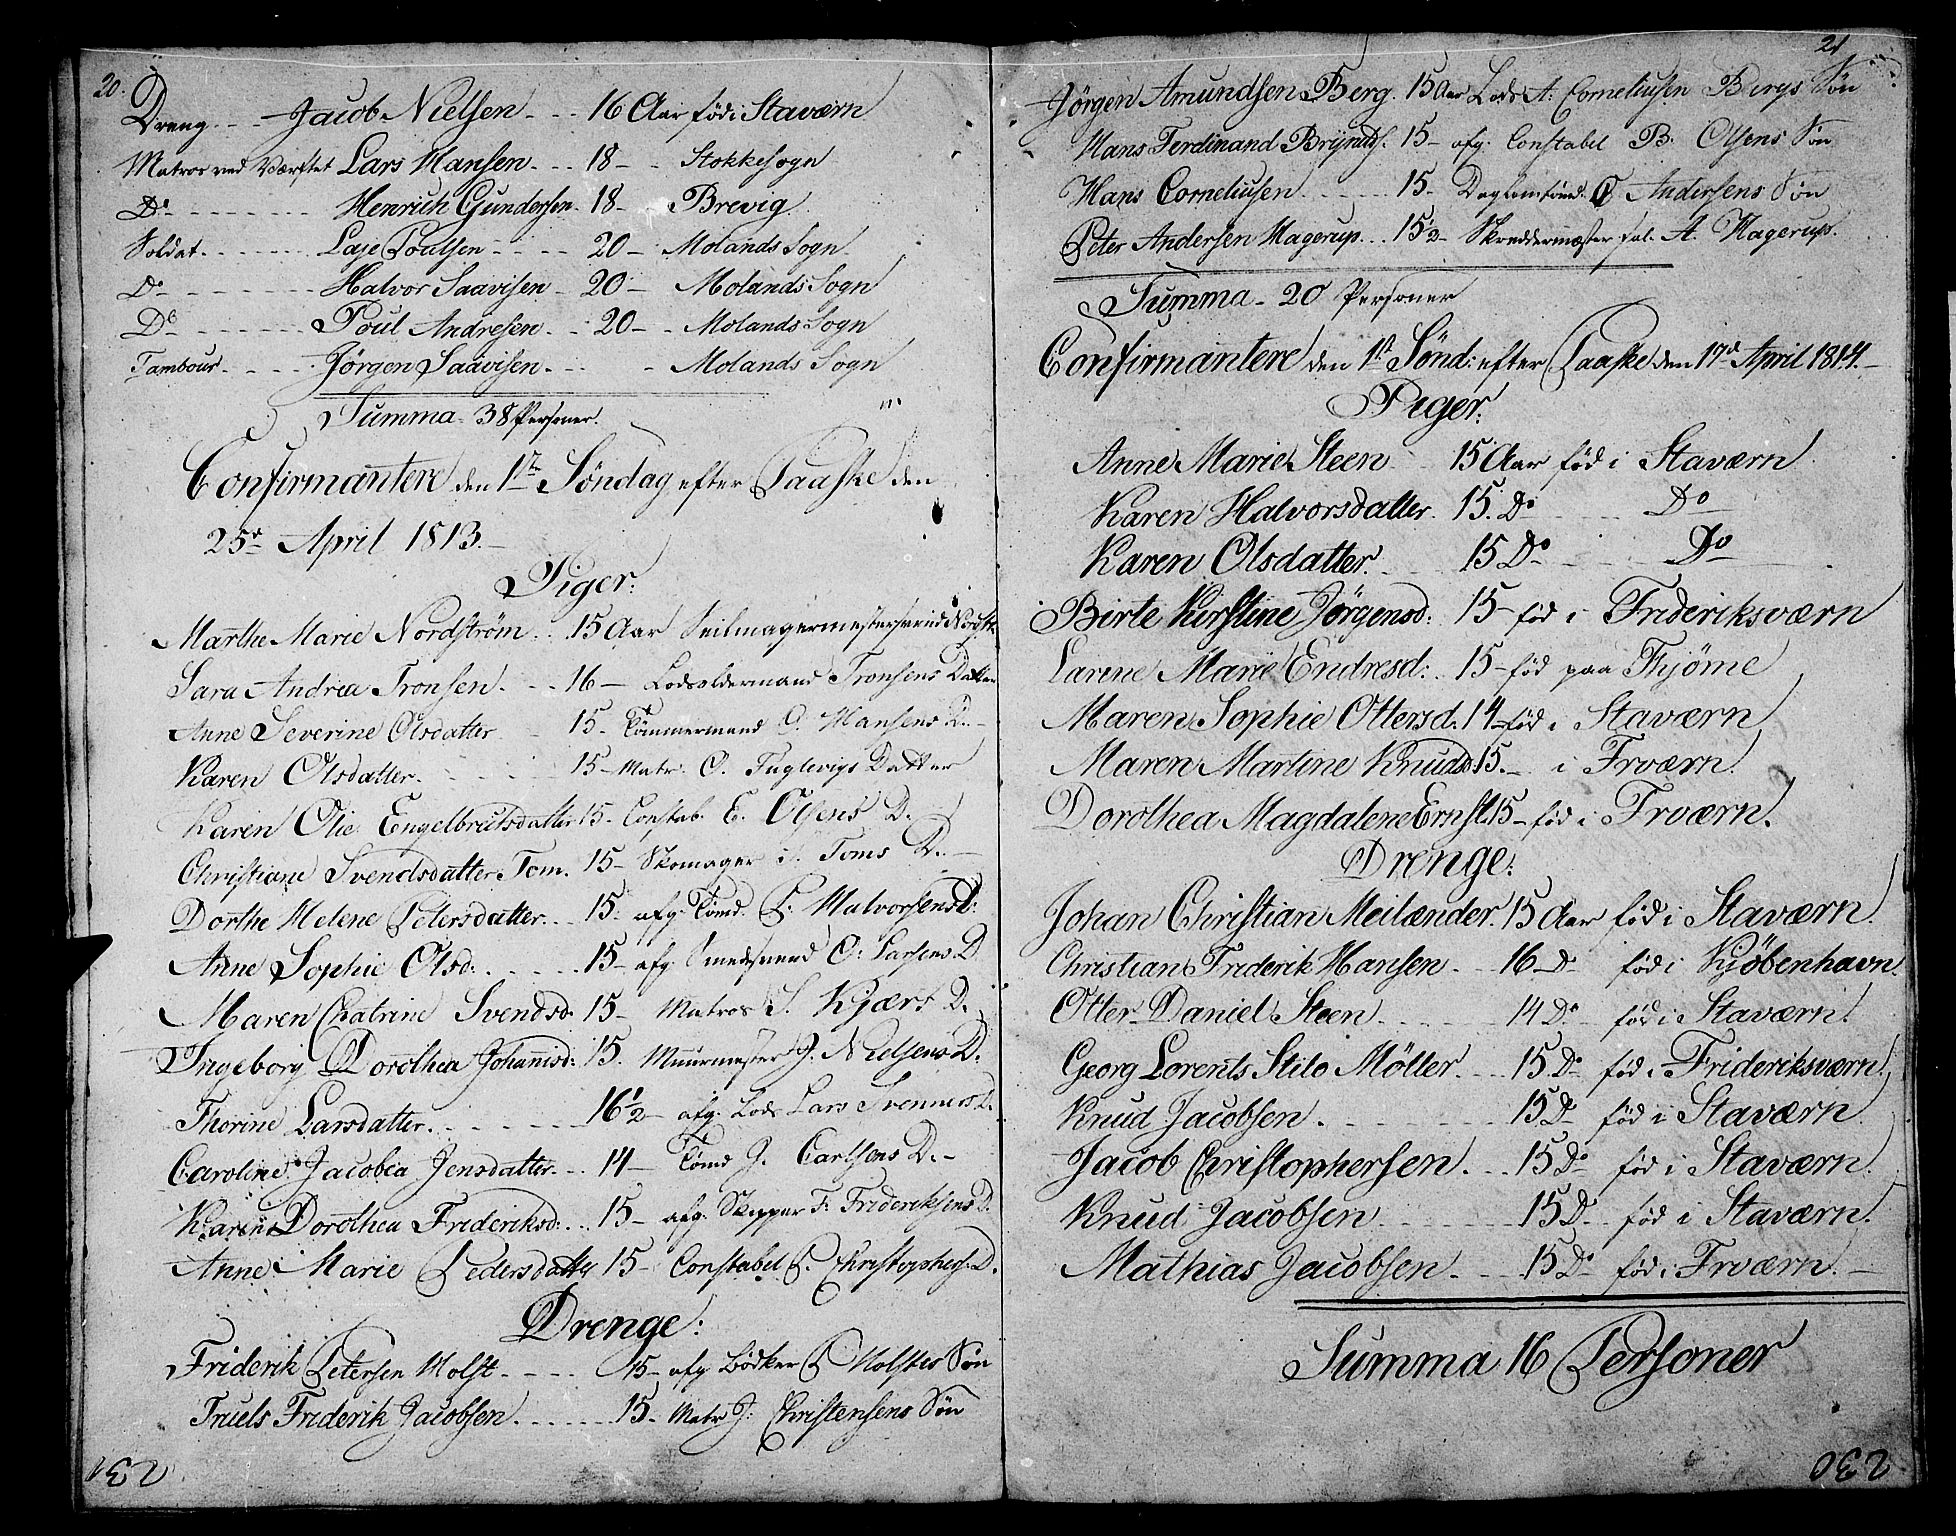 20.
Dreng - - - Jacob Nielsen - - - 16 Aar föd i Staværn
Matros ved Værftet Lars Hansen - - - 18 - - Stokkesogn
Do - - - - - - - Henrich Gundersen - 18 - Brevig
Soldat - - - - - - Laje Poulsen - - - - 20 - Molands Sogn
Do - - - - - - Halvor Saavisen - 20 - Molands Sogn
Do - - - - - - Poul Andresen - - 20 - Molands Sogn
Tambour - - - - Jörgen Saavisen - - - - Molands Sogn
Summa - 38 Personer.
Confirmantere den 1te Söndag efter Paaske den
25de April 1813.
Piger:
Marthe Marie Nordström - - 15 Aar Seilmagermestersvend Nordst:
Sara Andrea Tronsen - - - 16 - Lodsoldermand Tronsens Datter
Anne Severine Olsdatter - 15 - Tömmermand O. Hansens D. -
Karen Olsdatter - - - - 15 - Matr. O. Fuglevigs Datter
Karen Olie Engelbretsdatter 15 - Constab. E. Olsens D.
Christiane Svendsdatter Tom. 15 - Skomager S. Toms D. -
Dorthe Helene Petersdatter - - 15 - afg. Tömd. P. Halvorsens D:
Anne Sophie Olsd: - - - - - 15 - afg. Smedsvend O: Larsens D.
Maren Chatrine Svendsd: 15 - Matros S. Kjærs D.
Ingeborg Dorothea Johannsd: 15. Muurmester J. Nielsens D.
Thorine Larsdatter. - - - - - - 16 1/2 - afg. Lods Lars Svenners D.
Caroline Jacobea Jensdatter - - 14 - Tömd J. Carlsens D. -
Karen Dorothea Frideriksd: - - 15 - afg. Skipper F: Frideriksens D.
Anne Marie Pedersdatter 15 - Constabel P. Christophers: D.
Drenge:
Friderik Petersen Holst - - - - 15 - afg. Bödker P Holstes Sön
Truels Friderik Jacobsen - - - - - 15 - Matr J: Christensens Sön
231
21
Jörgen Amundsen Berg. 15 Aar Lods A: Corneliusen Bergs Sön
Hans Ferdinand Brynds. 15 - afg. Constabel B. Olsens Sön
Hans Corneliusen - - - - - 15 - Daglönsmd. C Andersens Sön
Peter Andersen Hagerup - - - 15 1/2 - Skreddermester sal. A. Hagerups.
Summa - 20 Personer
Confirmantere den 1ste Sönd: efter Paaske den 17de April 1814. -
Piger:
Anne Marie Steen 15 Aar föd i Staværn
Karen Halvorsdatter. 15. Do - - - Do
Karen Olsdatter. - - 15 Do - - - Do
Birte Kirstine Jörgensd: 15 - föd i Frideriksværn
Larene Marie Endresd: - 15 - föd paa Thjöme
Maren Sophie Ottersd. 14 - föd i Staværn
Maren Martine Knuds. 15. - i Frværn.
Dorothea Magdalene Ernst. 15 - föd i Frværn.
Drenge:
Johan Christian Meilænder. 15 Aar föd i Staværn.
Christian Friderik Hansen - - 16 Do föd i Kjöbenhavn.
Otter Daniel Steen - - - - - 14 Do - föd i Staværn.
Georg Lorents Stilo Möller - - - 15 Do föd i Frideriksværn.
Knud Jacobsen - - - - - - - 15 D föd i Staværn.
Jacob Christophersen. - - 15 Do föd i Staværn.
Knud Jacobsen - - - - - - 15 D - föd i Staværn.
Mathias Jacobsen - - - - 15 Do föd i Frværn. -
Summa 16 Personer
230